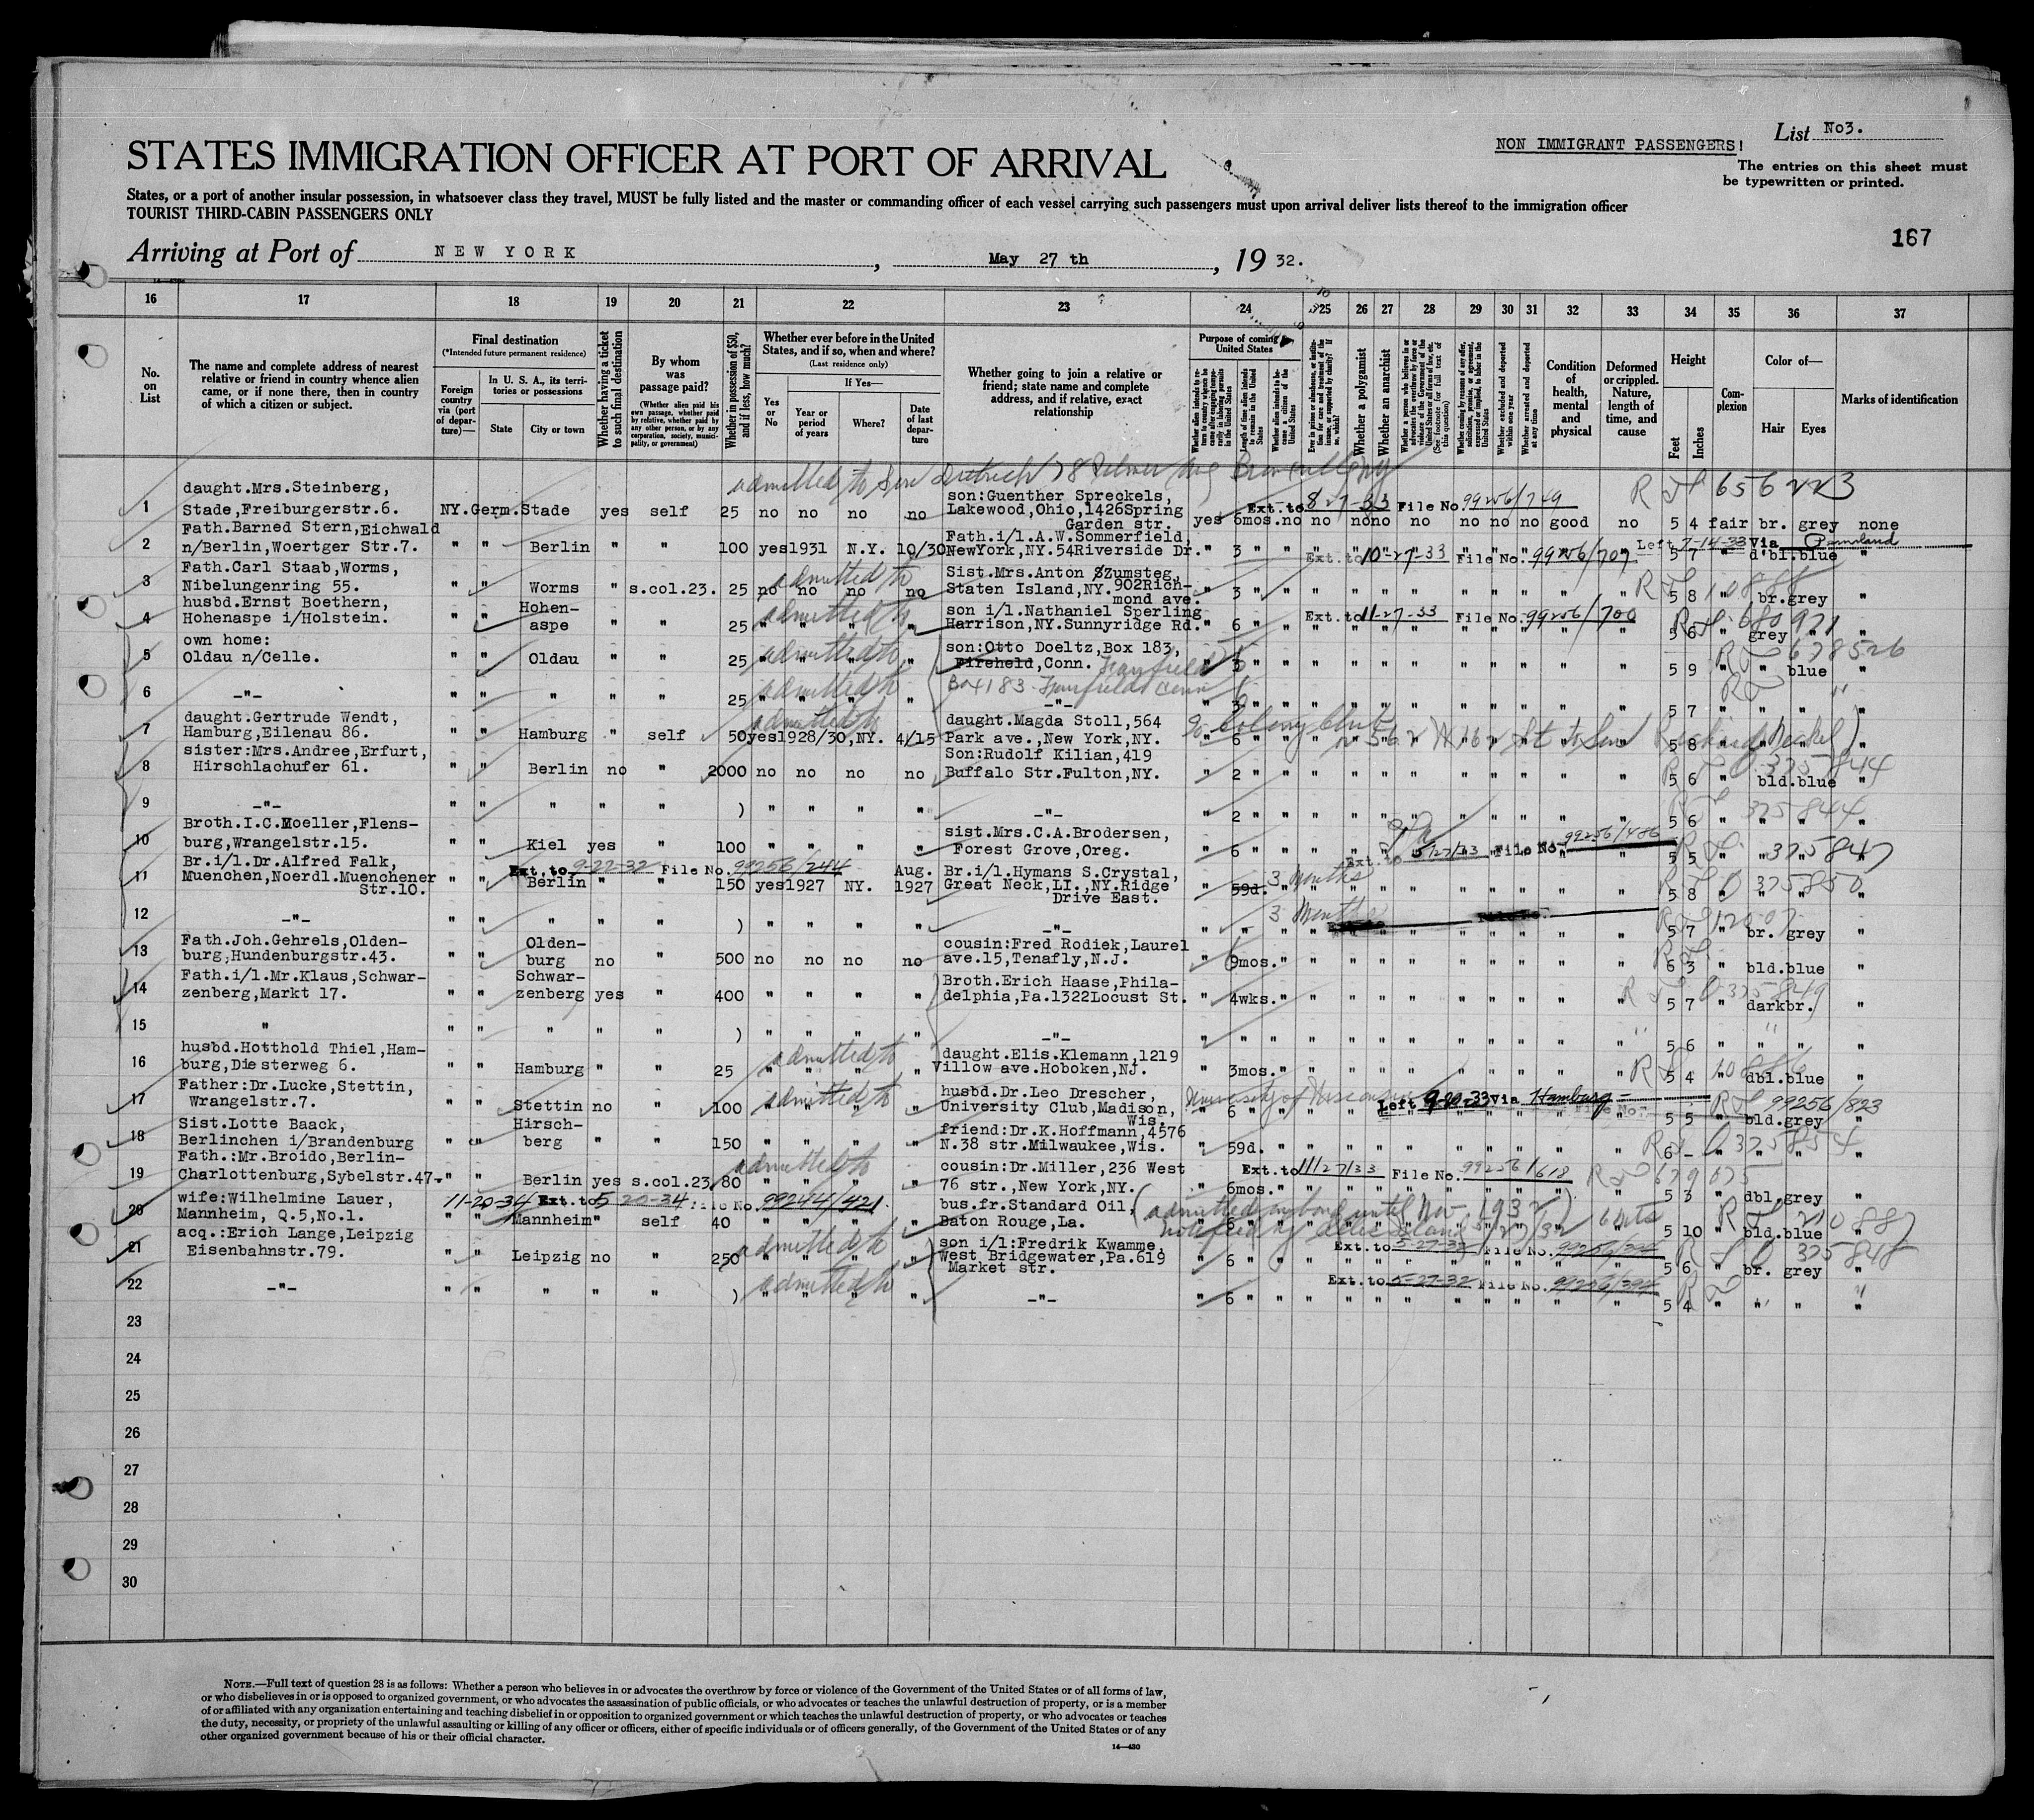 NON IMMIGRANT PASSENGERS!
List No3.
STATES IMMIGRATION OFFICER AT PORT OF ARRIVAL
The entries on this sheet must
be typewritten or printed.
States, or a port of another insular possession, in whatsoever class they travel, MUST be fully listed and the master or commanding officer of each vessel carrying such passengers must upon arrival deliver lists thereof to the immigration officer
TOURIST THIRD-CABIN PASSENGERS ONLY
167
Arriving at Port of NEW YORK, May 27 th, 19 32.
16 17 18 19 20 21 22 23 24 25 26 27 28 29 30 31 32 33 34 35 36 37
No. on List
The name and complete address of nearest relative or friend in country whence alien came, or if none there, then in country of which a citizen or subject.
Final destination
(*Intended future permanent residence)
Foreign country via (port of departure)—
In U. S. A., its territories or possessions
State City or town
Whether having a ticket to such final destination
By whom was passage paid?
(Whether alien paid his own passage, whether paid by relative, whether paid by any other person, or by any corporation, society, municipality, or government)
Whether in possession of $50, and if less, how much?
Whether ever before in the United States, and if so, when and where?
(Last residence only)
Yes or No
If Yes—
Year or period of years
Where?
Date of last departure
Whether going to join a relative or friend; state name and complete address, and if relative, exact relationship
Purpose of coming to United States
Length of time alien intends to remain in the United States
Whether alien intends to become a citizen of the United States
Whether a polygamist
Whether an anarchist
Whether excluded and deported within one year
Whether arrested and deported at any time
Condition of health, mental and physical
Deformed or crippled. Nature, length of time, and cause
Height
Feet Inches
Complexion
Color of—
Hair Eyes
Marks of identification
admitted to Son
1 daught.Mrs.Steinberg,
Stade,Freiburgerstr.6. NY.Germ.Stade yes self 25 no no no no son:Guenther Spreckels,
Lakewood,Ohio,1426Spring
Garden str. yes 6mos.no no no no no no no no good no 5 4 fair br. grey none
Ext. to 8-27-33 File No. 99256/749
R 656223
2 Fath.Barned Stern,Eichwald
n/Berlin,Woertger Str.7. " " Berlin " " 100 yes1931 N.Y. 10/30 Fath.i/l.A.W.Sommerfield,
NewYork,NY.54Riverside Dr. " 3 " 5 7 " d'bl.blue "
Ext. to 10-27-33 File No. 99256/707
Left 7-14-33 Via
3 Fath.Carl Staab,Worms,
Nibelungenring 55. " " Worms " s.col.23. 25 no no no no Sist.Mrs.Anton Zumsteg,
Staten Island,NY.902Rich-
mond ave. " 3 " 5 8 " br.grey "
admitted to
4 husbd.Ernst Boethern,
Hohenaspe i/Holstein. " " Hohen-
aspe " " 25 " " " " son i/l.Nathaniel Sperling
Harrison,NY.Sunnyridge Rd. " 6 " 5 6 " grey "
Ext. to 11-27-33 File No. 99256/700
admitted to
680921
5 own home:
Oldau n/Celle. " " Oldau " " 25 " " " " son:Otto Doeltz,Box 183,
Fireheld,Conn. 5 9 " " blue "
admitted to
678526
6 -"- " " " " " 25 " " " " -"- 5 7 " " " "
admitted to
Box 183 Fairfield Conn
7 daught.Gertrude Wendt,
Hamburg,Eilenau 86. " " Hamburg " self 50yes1928/30,NY. 4/15 daught.Magda Stoll,564
Park ave.,New York,NY. " 6 " 5 8 " " " "
admitted to
% Colony Club
8 sister:Mrs.Andree,Erfurt,
Hirschlachufer 61. " " Berlin no " 2000 no no no no Son:Rudolf Kilian,419
Buffalo Str.Fulton,NY. " 2 " 5 6 " bld.blue "
375844
9 -"- " " " " " ) " " " " -"- " 2 " 5 6 " " " "
375844
10 Broth.I.C.Moeller,Flens-
burg,Wrangelstr.15. " " Kiel yes " 100 " " " " sist.Mrs.C.A.Brodersen,
Forest Grove,Oreg. " 6 " 5 5 " " " "
Ext. to 5/27/33 File No. 99256/486
375847
11 Br.i/l.Dr.Alfred Falk,
Muenchen,Noerdl.Muenchener
Str.10. " " Berlin " " 150 yes1927 NY. Aug.
1927 Br.i/l.Hymans S.Crystal,
Great Neck,LI.,NY.Ridge
Drive East. " 59d. " 5 8 " " " "
Ext. to 9-22-32 File No. 99256/244
3 Months
375850
12 -"- " " " " " ) " " " " -"- " " " 5 7 " br. grey "
3 Months
13 Fath.Joh.Gehrels,Olden-
burg,Hundenburgstr.43. " " Olden-
burg no " 500 no no no no cousin:Fred Rodiek,Laurel
ave.15,Tenafly,N.J. " mos. " 6 3 " bld.blue "
14 Fath.i/l.Mr.Klaus,Schwar-
zenberg,Markt 17. " " Schwar-
zenberg yes " 400 " " " " Broth.Erich Haase,Phila-
delphia,Pa.1322Locust St. " 4wks. " 5 7 " darkbr. "
375849
15 " " " " " " ) " " " " -"- " " " 5 6 " " " "
16 husbd.Hotthold Thiel,Ham-
burg,Diesterweg 6. " " Hamburg " " 25 " " " " daught.Elis.Klemann,1219
Villow ave.Hoboken,NJ. " 3mos. " 5 4 " dbl.blue "
admitted to
17 Father:Dr.Lucke,Stettin,
Wrangelstr.7. " " Stettin no " 100 " " " " husbd.Dr.Leo Drescher,
University Club,Madison,
Wis. " 6 " 5 5 " bld.grey "
admitted to
University of Wisconsin
Left 9-20-33 Via Hamburg
99256/823
18 Sist.Lotte Baack,
Berlinchen i/Brandenburg " " Hirsch-
berg " " 150 " " " " friend:Dr.K.Hoffmann,4576
N.38 str.Milwaukee,Wis. " 59d. " 6 - " " " "
375854
19 Fath.:Mr.Broido,Berlin-
Charlottenburg,Sybelstr.47. " " Berlin yes s.col.23. 80 " " " " cousin:Dr.Miller,236 West
76 str.,New York,NY. " 6mos. " 5 3 " dbl.grey "
admitted to
Ext. to 11/27/33 File No. 99256/618
679675
20 wife:Wilhelmine Lauer,
Mannheim, Q.5,No.1. " " Mannheim " self 40 " " " " bus.fr.Standard Oil,
Baton Rouge,La. " 6 " 5 10 " bld.blue "
11-20-34 Ext. to 5-20-34 File No. 99244/421
admitted on bond until Nov. 1932
21 acq.:Erich Lange,Leipzig
Eisenbahnstr.79. " " Leipzig no " 250 " " " " son i/l:Fredrik Kwamme,
West Bridgewater,Pa.619
Market str. " 6 " 5 6 " br. grey "
admitted to
Ext. to 5-27-33 File No. 99256/394
375848
22 -"- " " " " " ) " " " " -"- " 6 " 5 4 " " " "
admitted to
Ext. to 5-27-32 File No. 99256/394
23
24
25
26
27
28
29
30
NOTE.—Full text of question 28 is as follows: Whether a person who believes in or advocates the overthrow by force or violence of the Government of the United States or of all forms of law,
or who disbelieves in or is opposed to organized government, or who advocates the assassination of public officials, or who advocates or teaches the unlawful destruction of property, or is a member
of or affiliated with any organization entertaining and teaching disbelief in or opposition to organized government or which teaches the unlawful destruction of property, or who advocates or teaches
the duty, necessity, or propriety of the unlawful assaulting or killing of any officer or officers, either of specific individuals or of officers generally, of the Government of the United States or of any
other organized government because of his or their official character.
14—430